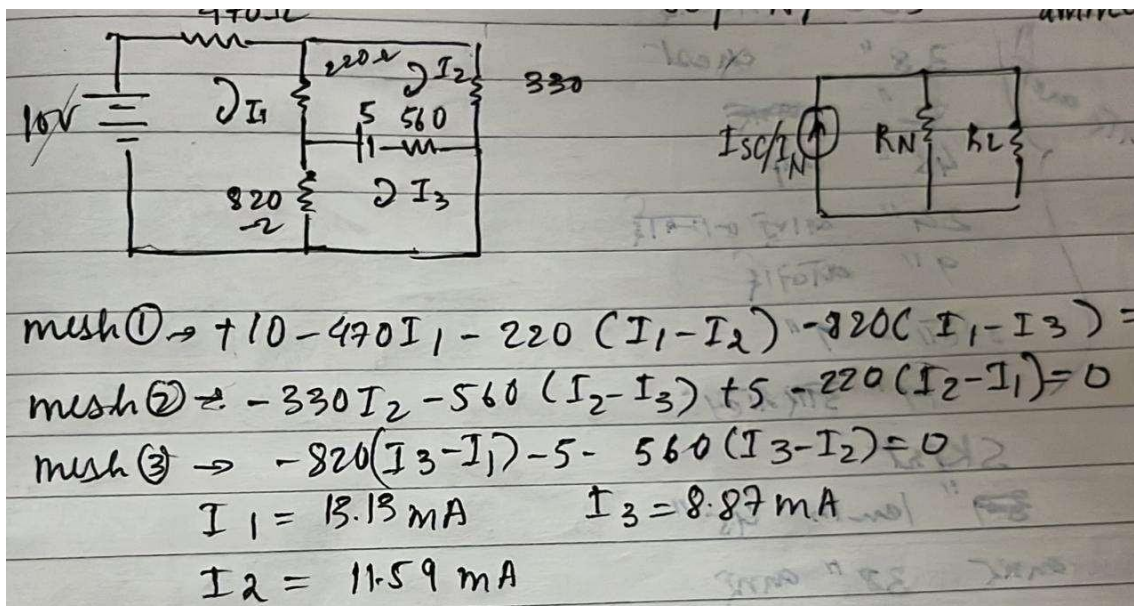 470Ω
220Ω
I2
330
10V
I1
5 560
Isc/IN
RN
RL
820
Ω
I3
mesh ① → +10 - 470I1 - 220 (I1 - I2) - 820( I1 - I3 ) =
mesh ② → - 330I2 - 560 (I2 - I3) + 5 - 220 (I2 - I1) = 0
mesh ③ → - 820(I3 - I1) - 5 - 560 (I3 - I2) = 0
I1 = 13.13 mA I3 = 8.87 mA
I2 = 11.59 mA